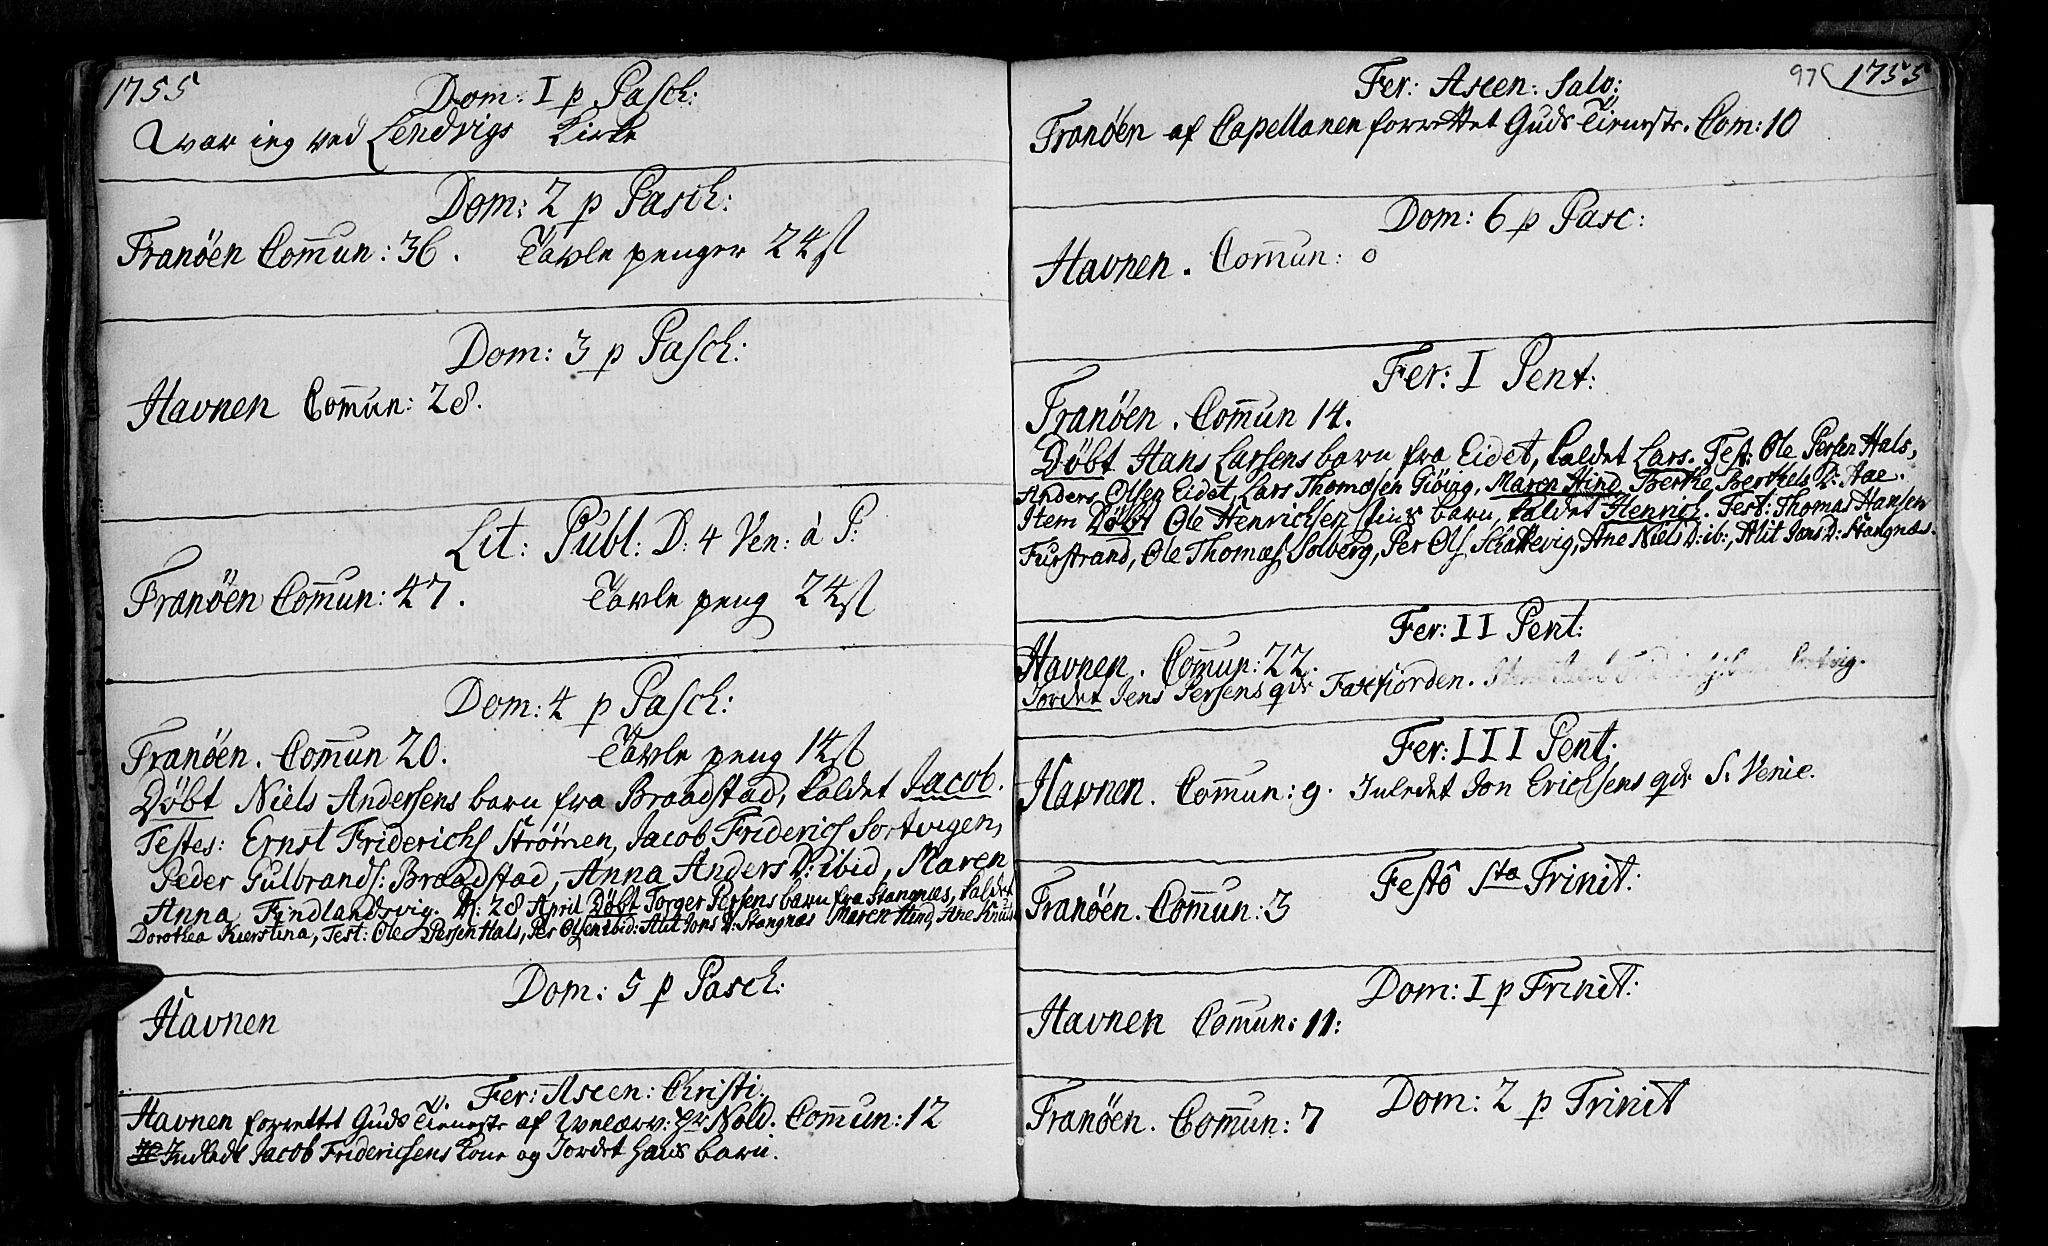 1755
Dom: I p Pasch:
war ieg ved Lendvigs Kirke
Dom: 2 p Pasch:
Tranöen Com̄un: 36. Tavle penger 24 sl
Dom: 3 p Pasch:
Havnen Com̄un: 28.
Lit: Publ: D: 4 Ven: à P:
Tranöen Com̄un: 47. Tavle peng 24 sl
Dom: 4 p Pasch:
Tranöen. Com̄un 20. Tavle peng 14 sl
Döbt Niels Andersens barn fra Braadstad, kaldet Jacob.
Testes: Ernst Friderichs Strömen, Jacob Friderichs Sortvigen,
Peder Gulbrands: Braadstad, Anna Anders D: ibid, Maren
Anna Findlandsvig. D: 28 April Döbt Torger Persens barn fra Stangnæs, kaldet
Dorothea Kierstina, Test: Ole Persen Hals, Per Olsen ibid: Alit Jons D: Stangnæs Maren Hind, Ane Knuds
Dom: 5 p Pasch:
Havnen
Fer: Ascen: Christi
Havnen forrettet Guds Tieneste af Hr Nold. Com̄un: 12
Inledt Jacob Friderichsens kone og Jordet hans barn.
97 1755
Fer: Ascen: Salv:
Tranöen af Capellanen forrettet Guds Tieneste. Com: 10
Dom: 6 p Pasc:
Havnen. Com̄un: 0
Fer: I Pent:
Tranöen. Com̄un 14.
Döbt Hans Larsens barn fra Eidet, kaldet Lars. Test: Ole Persen Hals,
Anders Olsen Eidet, Lars Thomæsen Giöing, Maren Hind, Berthe Berthels D: Aae.
Item Döbt Ole Henrichsen barn, kaldet Henrich. Test: Thomas Hansen
Furstrand, Ole Thomæs Solberg, Per Ols Skatvig, Ane Niels D: ib:, Alit Jons D: Stangnæs.
Fer: II Pent:
Havnen. Com̄un: 22.
Jordet Jens Persens qde Faxefiorden.
Fer: III Pent:
Havnen. Com̄un: 9. Inledet Jon Erichsens qde S. Venie.
Festô Sta Trinit:
Tranöen. Com̄un: 3
Dom: I p Trinit:
Havnen Com̄un: 11:
Dom: 2 p Trinit
Tranöen. Com̄un: 7